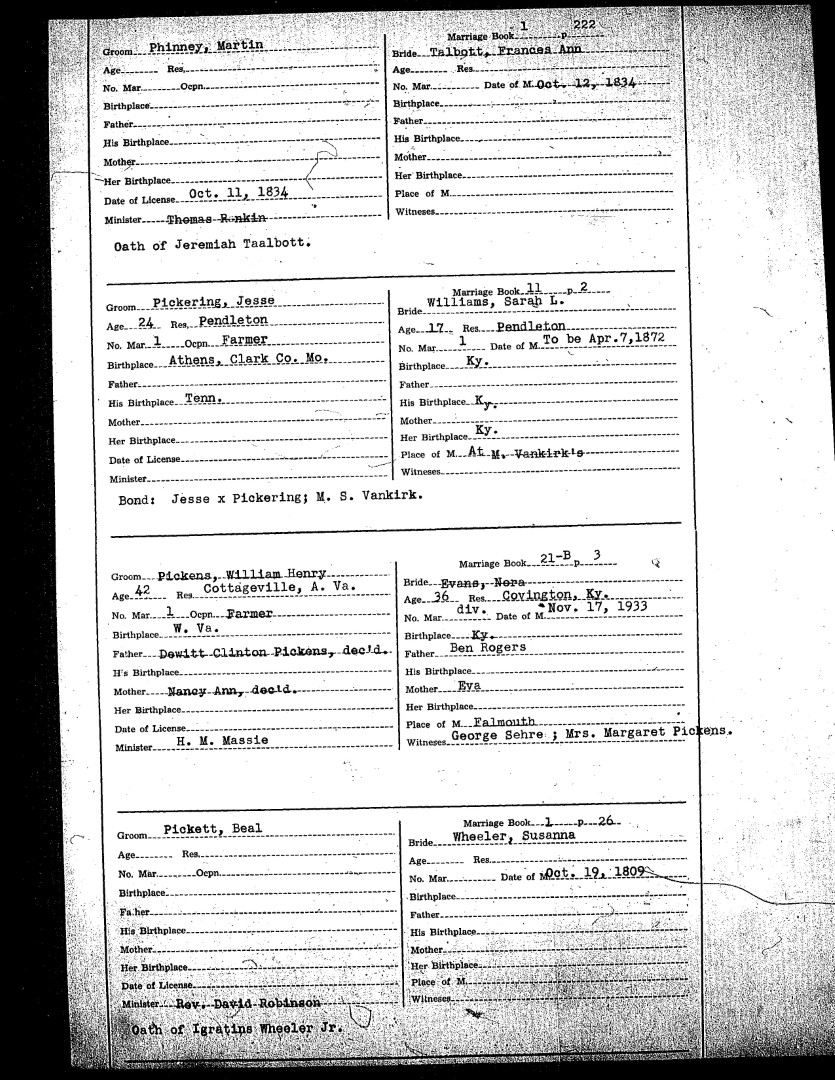 Groom Phinney, Martin
Age Res.
No. Mar. Ocpn.
Birthplace
Father
His Birthplace
Mother
Her Birthplace
Date of License Oct. 11, 1834
Minister Thomas Rankin
Marriage Book 1 p. 222
Bride Talbott, Frances Ann
Age Res.
No. Mar. Date of M. Oct. 12, 1834
Birthplace
Father
His Birthplace
Mother
Her Birthplace
Place of M.
Witneses
Oath of Jeremiah Taalbott.
Groom Pickering, Jesse
Age 24 Res. Pendleton
No. Mar. 1 Ocpn. Farmer
Birthplace Athens, Clark Co. Mo.
Father
His Birthplace Tenn.
Mother
Her Birthplace
Date of License
Minister
Marriage Book 11 p. 2
Bride Williams, Sarah L.
Age 17 Res. Pendleton
No. Mar. 1 Date of M. To be Apr.7,1872
Birthplace Ky.
Father
His Birthplace Ky.
Mother
Her Birthplace Ky.
Place of M. At M. Vankirk's
Witneses
Bond: Jesse x Pickering; M. S. Vankirk.
Groom Pickens, William Henry
Age 42 Res. Cottageville, A. Va.
No. Mar. 1 Ocpn. Farmer
Birthplace W. Va.
Father Dewitt Clinton Pickens, dec'd.
H's Birthplace
Mother Nancy Ann, dec'd.
Her Birthplace
Date of License
Minister H. M. Massie
Marriage Book 21-B p. 3
Bride Evans, Nora
Age 36 Res. Covington, Ky.
No. Mar. div. Date of M. Nov. 17, 1933
Birthplace Ky.
Father Ben Rogers
His Birthplace
Mother Eva
Her Birthplace
Place of M. Falmouth
Witneses George Sehre ; Mrs. Margaret Pickens.
Groom Pickett, Beal
Age Res.
No. Mar. Ocpn.
Birthplace
Father
His Birthplace
Mother
Her Birthplace
Date of License
Minister Rev. David Robinson
Marriage Book 1 p. 26
Bride Wheeler, Susanna
Age Res.
No. Mar. Date of M. Oct. 19, 1809
Birthplace
Father
His Birthplace
Mother
Her Birthplace
Place of M.
Witneses
Oath of Igratins Wheeler Jr.